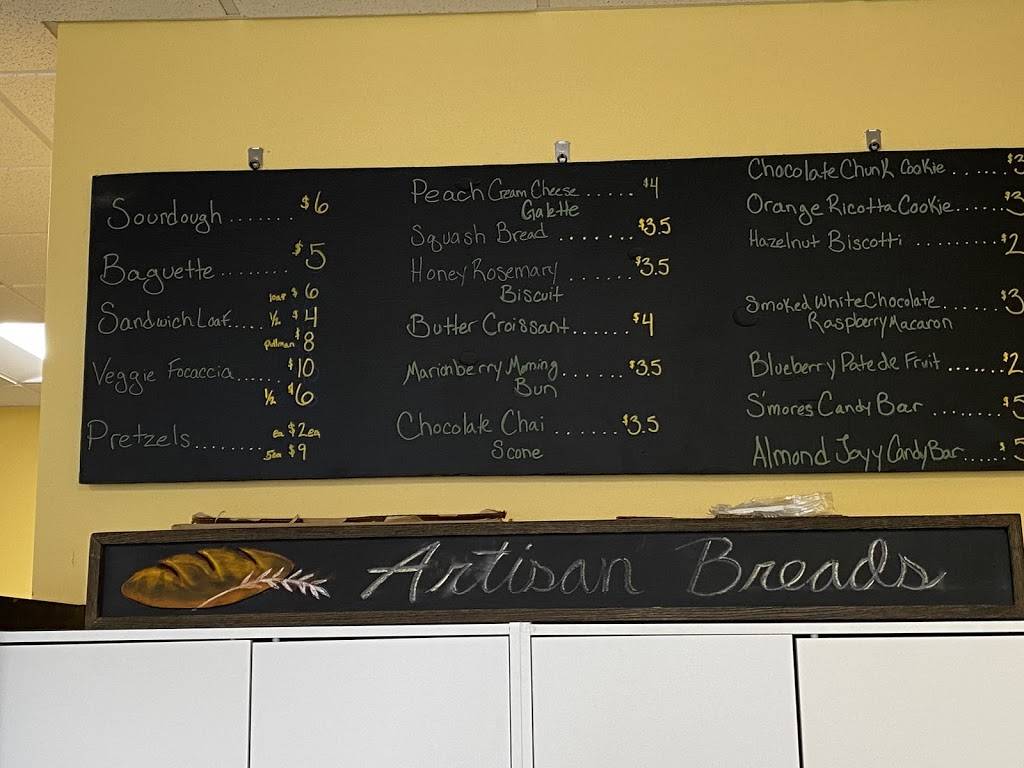 Sourdough ....... $6
Baguette ........ $5
loaf $6
Sandwich Loaf..... ½ $4
pullman $8
Veggie Focaccia...... $10
½ $6
Pretzels......... ea $2ea
5ea $9
Peach Cream Cheese ...... $4
Galette
Squash Bread ........ $3.5
Honey Rosemary ....... $3.5
Biscuit
Butter Croissant...... $4
Marionberry Morning ....... $3.5
Bun
Chocolate Chai ....... $3.5
Scone
Chocolate Chunk Cookie ...... $3
Orange Ricotta Cookie...... $3
Hazelnut Biscotti .......... $2
Smoked White Chocolate ...... $3
Raspberry Macaron
Blueberry Pate de Fruit ....... $2
S'mores Candy Bar ........ $5
Almond Joyy Candy Bar...... $5
Artisan Breads